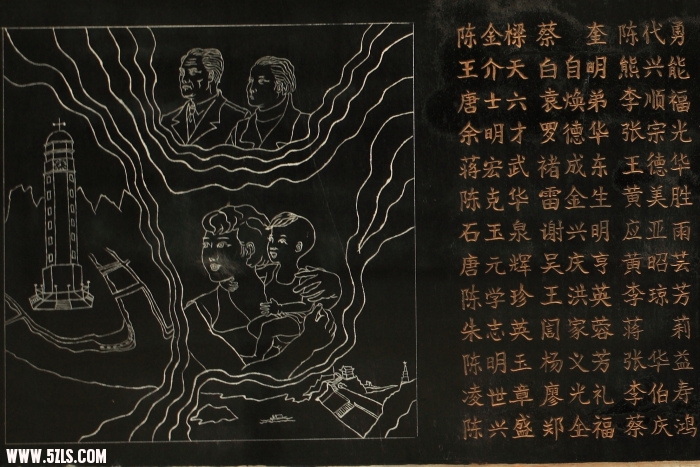 陈金樑 蔡奎 陈代勇
王介天 白自明 熊兴能
唐士六 袁焕弟 李顺福
余明才 罗德华 张宗光
蒋宏武 褚成东 王德华
陈克华 雷金生 黄美胜
石玉泉 谢兴明 应亚雨
唐元辉 吴庆亨 黄昭芸
陈学珍 王洪英 李琼芳
朱志英 闾家蓉 蒋莉
陈明玉 杨义芳 张华益
凌世章 廖光礼 李伯寿
陈兴盛 郑全福 蔡庆鸿
WWW.5ZLS.COM